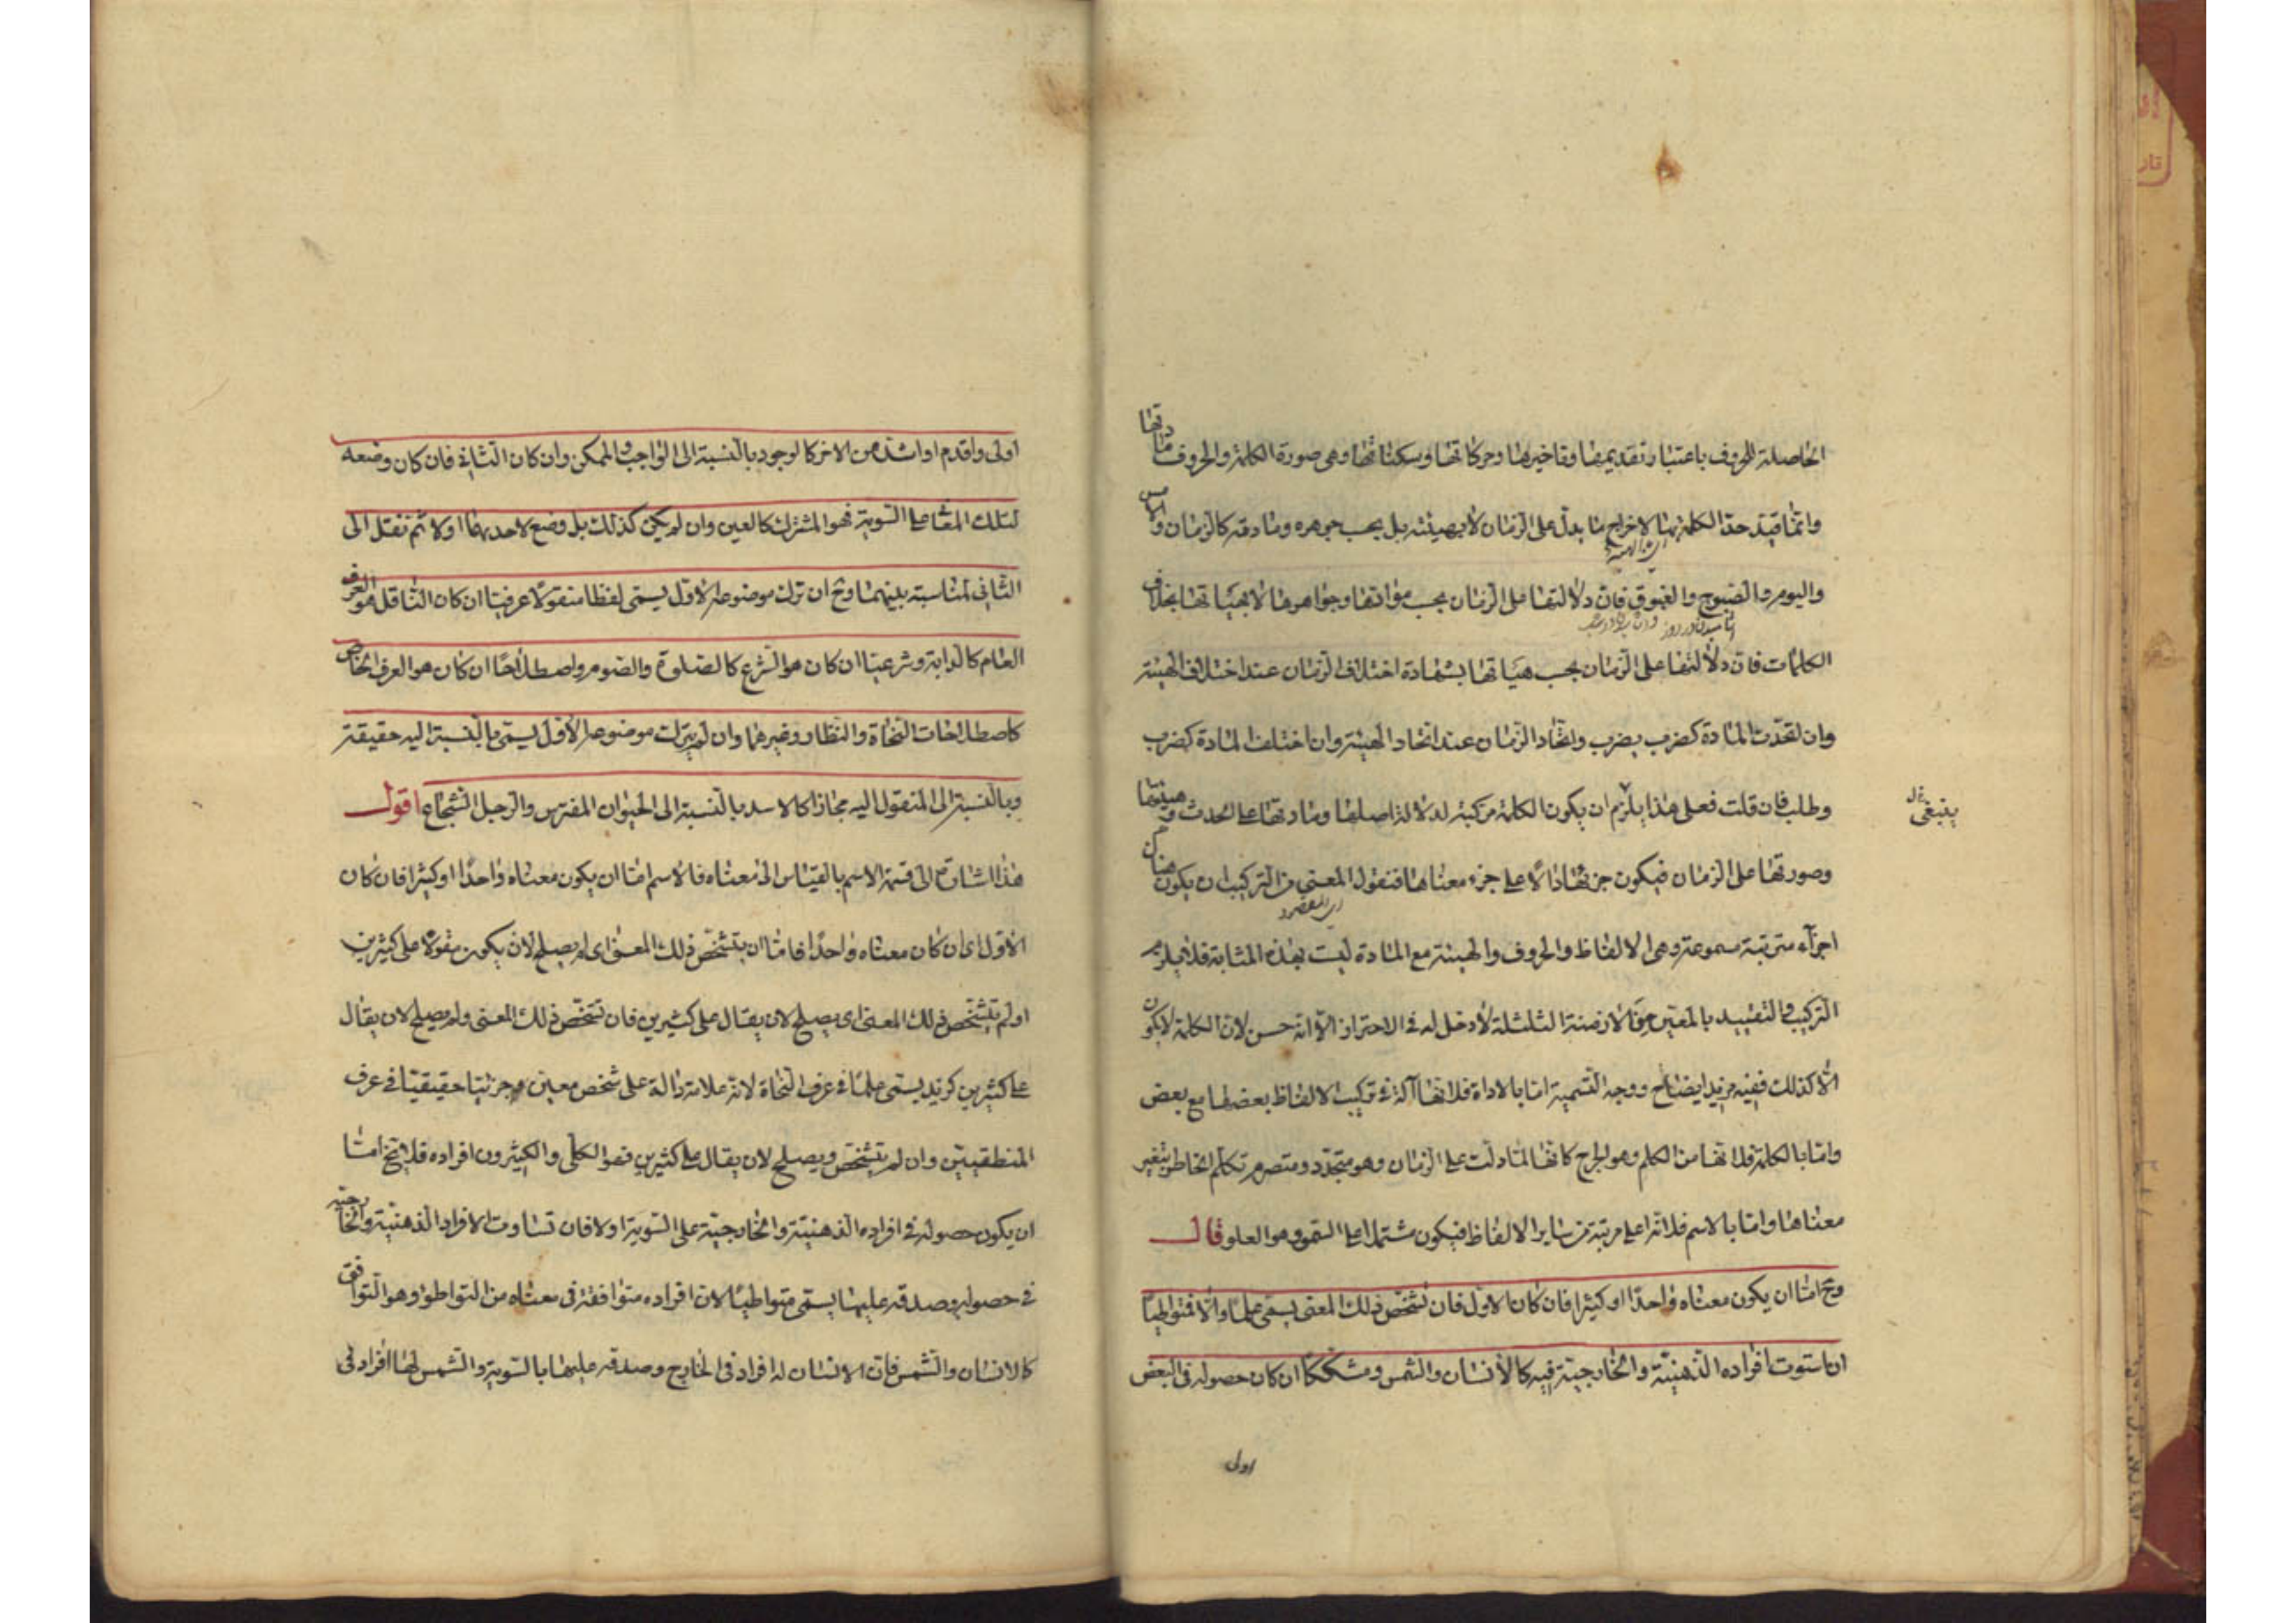 الحاصلة للحروف باعتبار تقديمها وتاخيرها وحركاتها وسكناتها وهى صورة الكلمة والحروف مادتها
وانما قيد حد الكلمة بها لاخراج ما يدل على الزمان لا بهيئته بل بحسب جوهره ومادته كالزمان والامس
واليوم والصبوح والغبوق فان دلالتها على الزمان بحسب موادها وجواهرها لا بهيئاتها بخلاف
الكلمات فان دلالتها على الزمان بحسب هيئاتها بشهادة اختلاف الزمان عند اختلاف الهيئة
وان اتحدت المادة كضرب يضرب واتحاد الزمان عند اتحاد الهيئة وان اختلفت المادة كضرب
وطلب فان قلت فعلى هذا يلزم ان يكون الكلمة مركبة لدلالة اصلها ومادتها على الحدث وهيئتها
ينبغى
وصورتها على الزمان فيكون جزئها دالا على جزء معناها فنقول المعنى من التركيب ان يكون هناك
اى المقصود
اجزاء مترتبة مسموعة وهى الالفاظ والحروف والهيئة مع المادة ليست بهذه المثابة فلا يلزم
التركيب والتقييد بالمعين من الازمنة الثلثة لا دخل له فى الاحتراز الا انه حسن لان الكلمة لا يكون
الا كذلك ففيه مزيد ايضاح ووجه التسمية اما بالاداة فلانها آلة فى تركيب الالفاظ بعضها مع بعض
واما بالكلمة فلانها من الكلم وهو الجرح كانها لما دلت على الزمان وهو متجدد ومتصرم تكلم الخاطر بتغير
معناها واما بالاسم فلانه اعلى مرتبة من ساير الالفاظ فيكون مشتملا على السمو وهو العلو قال
وح اما ان يكون معناه واحدا او كثيرا فان كان الاول فان تشخص ذلك المعنى يسمى علما والا فمتواطيا
ان استوت افراده الذهنية والخارجية فيه كالانسان والشمس ومشككا ان كان حصوله فى البعض
اولى
اولى واقدم او اشد من الاخر كالوجود بالنسبة الى الواجب والممكن وان كان الثانى فان كان وضعه
لتلك المعانى على السوية فهو المشترك كالعين وان لم يكن كذلك بل وضع لاحدهما اولا ثم نقل الى
الثانى لمناسبة بينهما وح ان ترك موضوعه الاول يسمى لفظا منقولا عرفيا ان كان الناقل هو العرف
العام كالدابة وشرعيا ان كان هو الشرع كالصلوة والصوم واصطلاحا ان كان هو العرف الخاص
كاصطلاحات النحاة والنظار وغيرهما وان لم يترك موضوعه الاول يسمى بالنسبة اليه حقيقة
وبالنسبة الى المنقول اليه مجازا كالاسد بالنسبة الى الحيوان المفترس والرجل الشجاع اقول
هذا اشارة الى قسمة الاسم بالقياس الى معناه فالاسم اما ان يكون معناه واحدا او كثيرا فان كان
الاول اى ان كان معناه واحدا فاما ان يتشخص ذلك المعنى اى لم يصلح لان يكون مقولا على كثيرين
او لم يتشخص ذلك المعنى اى يصلح لان يقال على كثيرين فان تشخص ذلك المعنى ولم يصلح لان يقال
على كثيرين كزيد يسمى علما فى عرف النحاة لانه علامة دالة على شخص معين وجزئيا حقيقيا فى عرف
المنطقيين وان لم يتشخص ويصلح لان يقال على كثيرين فهو الكلى والكثيرون افراده فلا يخ اما
ان يكون حصوله فى افراده الذهنية والخارجية على السوية او لا فان تساوت الافراد الذهنية والخارجية
فى حصوله وصدقه عليها يسمى متواطيا لان افراده متوافقة فى معناه من التواطؤ وهو التوافق
كالانسان والشمس فان الانسان له افراد فى الخارج وصدقه عليها بالسوية والشمس لها افراد فى